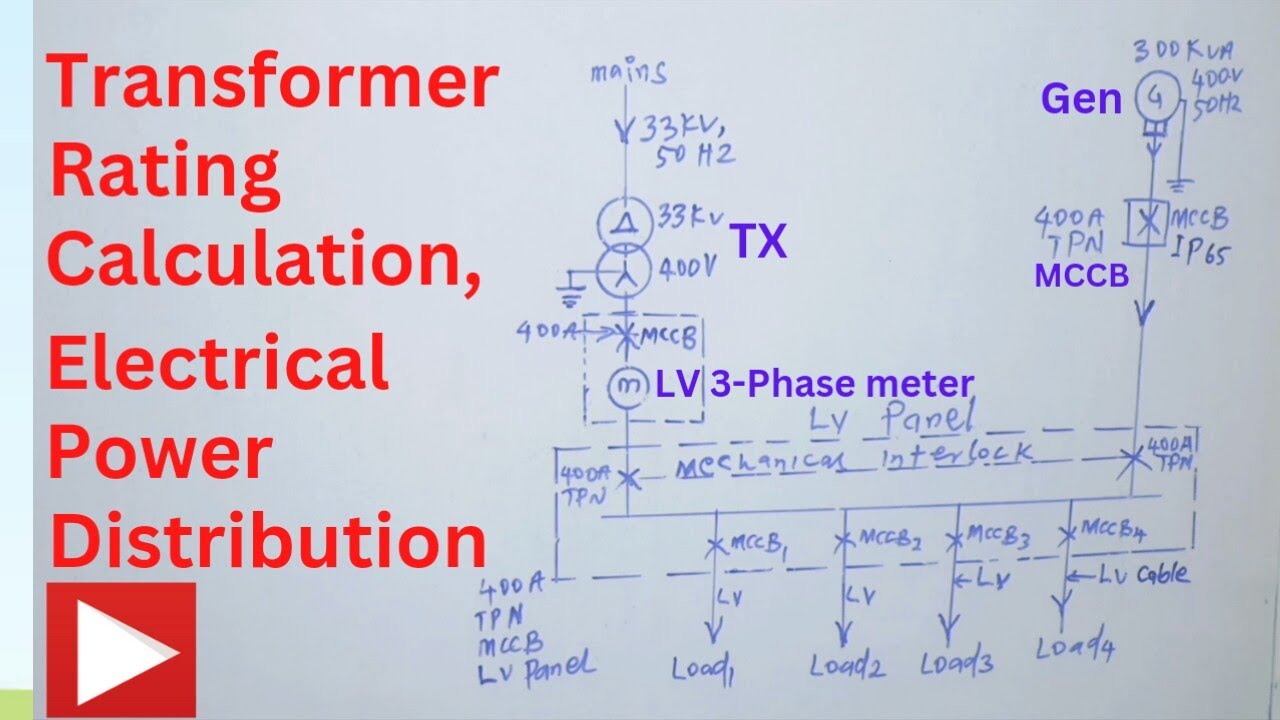 Transformer
Rating
Calculation,
Electrical
Power
Distribution
mains
33KV,
50HZ
33KV
TX
400V
400A
MCCB
m
LV 3-Phase meter
300KVA
400V
50HZ
Gen
G
400A
TPN
MCCB
IP65
MCCB
LV Panel
Mechanical interlock
400A
TPN
400A
TPN
MCCB1
MCCB2
MCCB3
MCCB4
LV
LV
LV
LV Cable
Load1
Load2
Load3
Load4
400A
TPN
MCCB
LV Panel